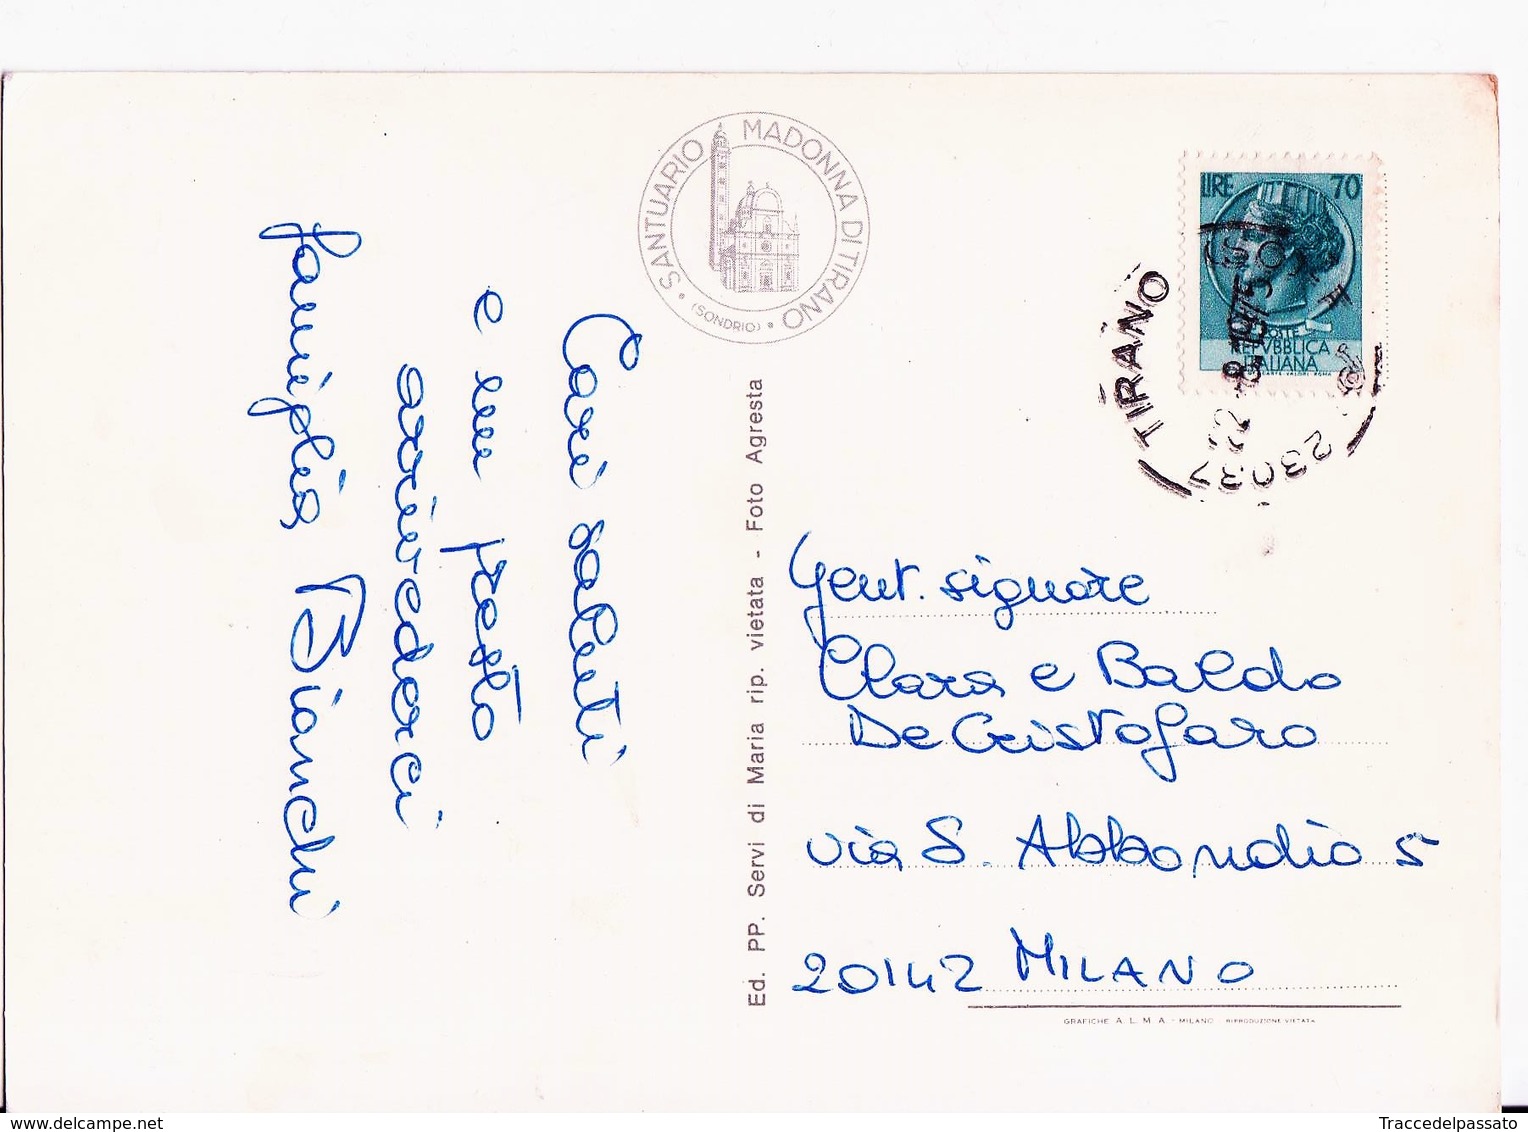 Cari saluti
e un presto
arrivederci
famiglia Bianchi
SANTUARIO MADONNA DI TIRANO
(SONDRIO)
Ed. PP. Servi di Maria rip. vietata - Foto Agresta
LIRE 70
POSTE
REPVBBLICA
ITALIANA
23037 TIRANO
-8.1975
Gent. signore
Clara e Baldo
De Cristofaro
via S. Abbondio 5
20142 MILANO
GRAFICHE A. L. M. A. - MILANO RIPRODUZIONE VIETATA
www.delcampe.net
Traccedelpassato